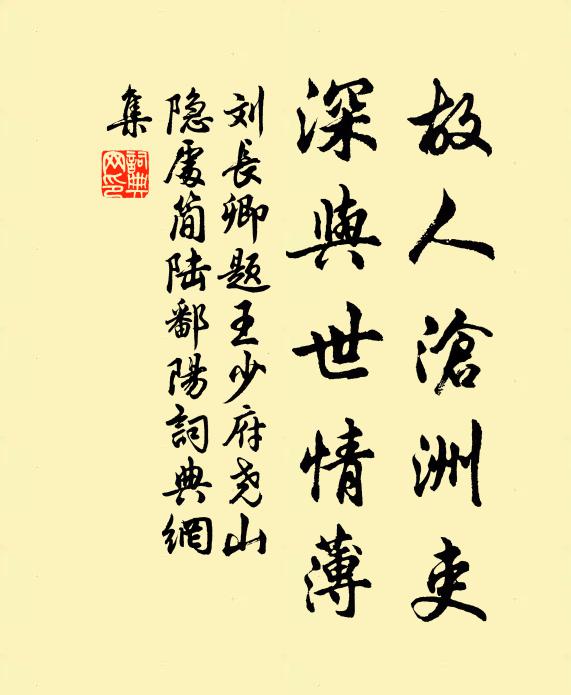 故人滄洲吏
深與世情薄
刘長卿题王少府尧山
隐處简陆鄱陽詞典網
集
詞典網印